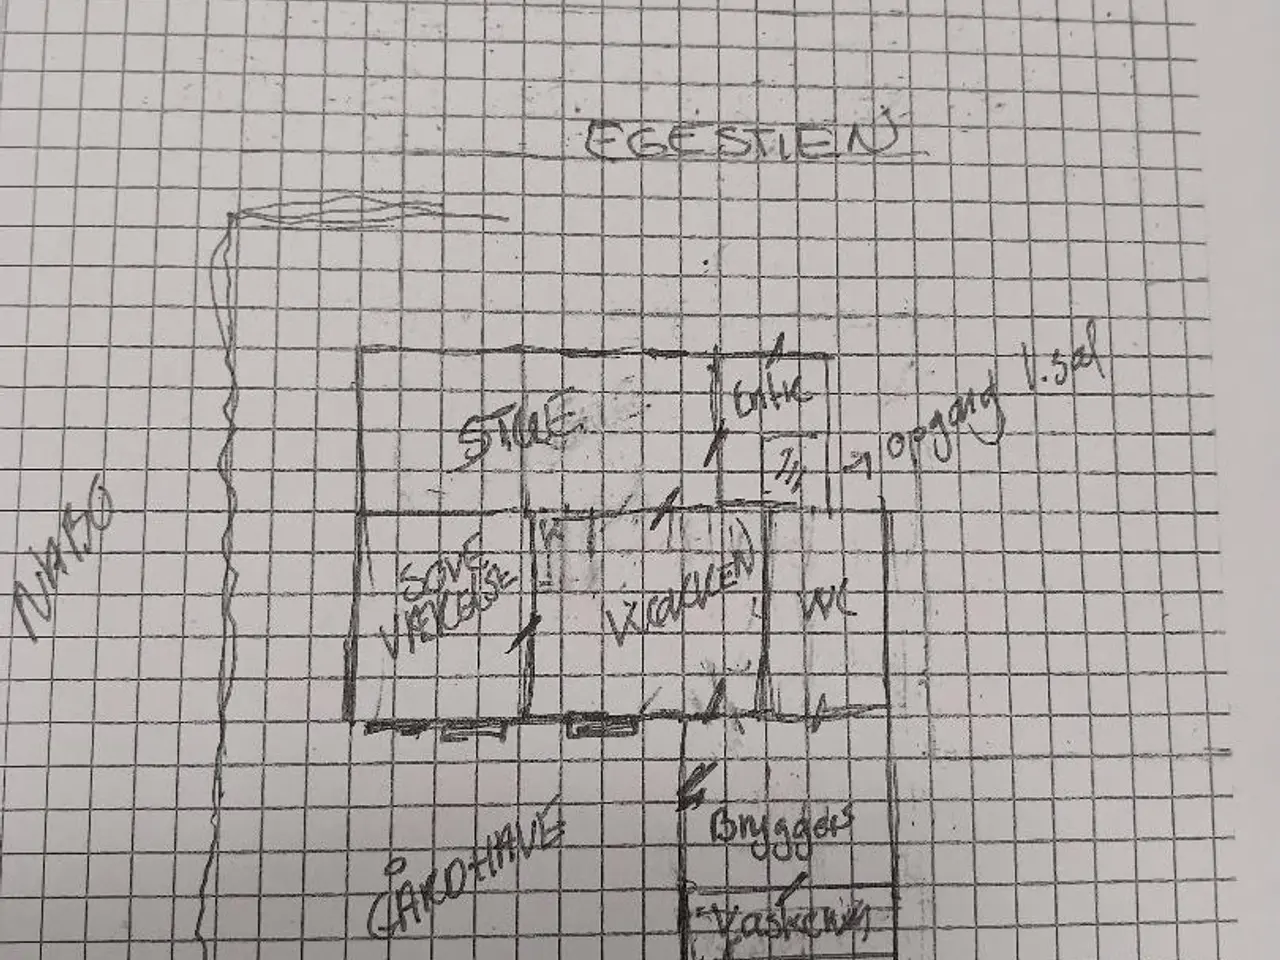 EGESTIEN
Entre
STUE
opgang 1.sal
NABO
SOVE
VÆRELSE
KØKKEN
WC
Bryggers
GÅRDHAVE